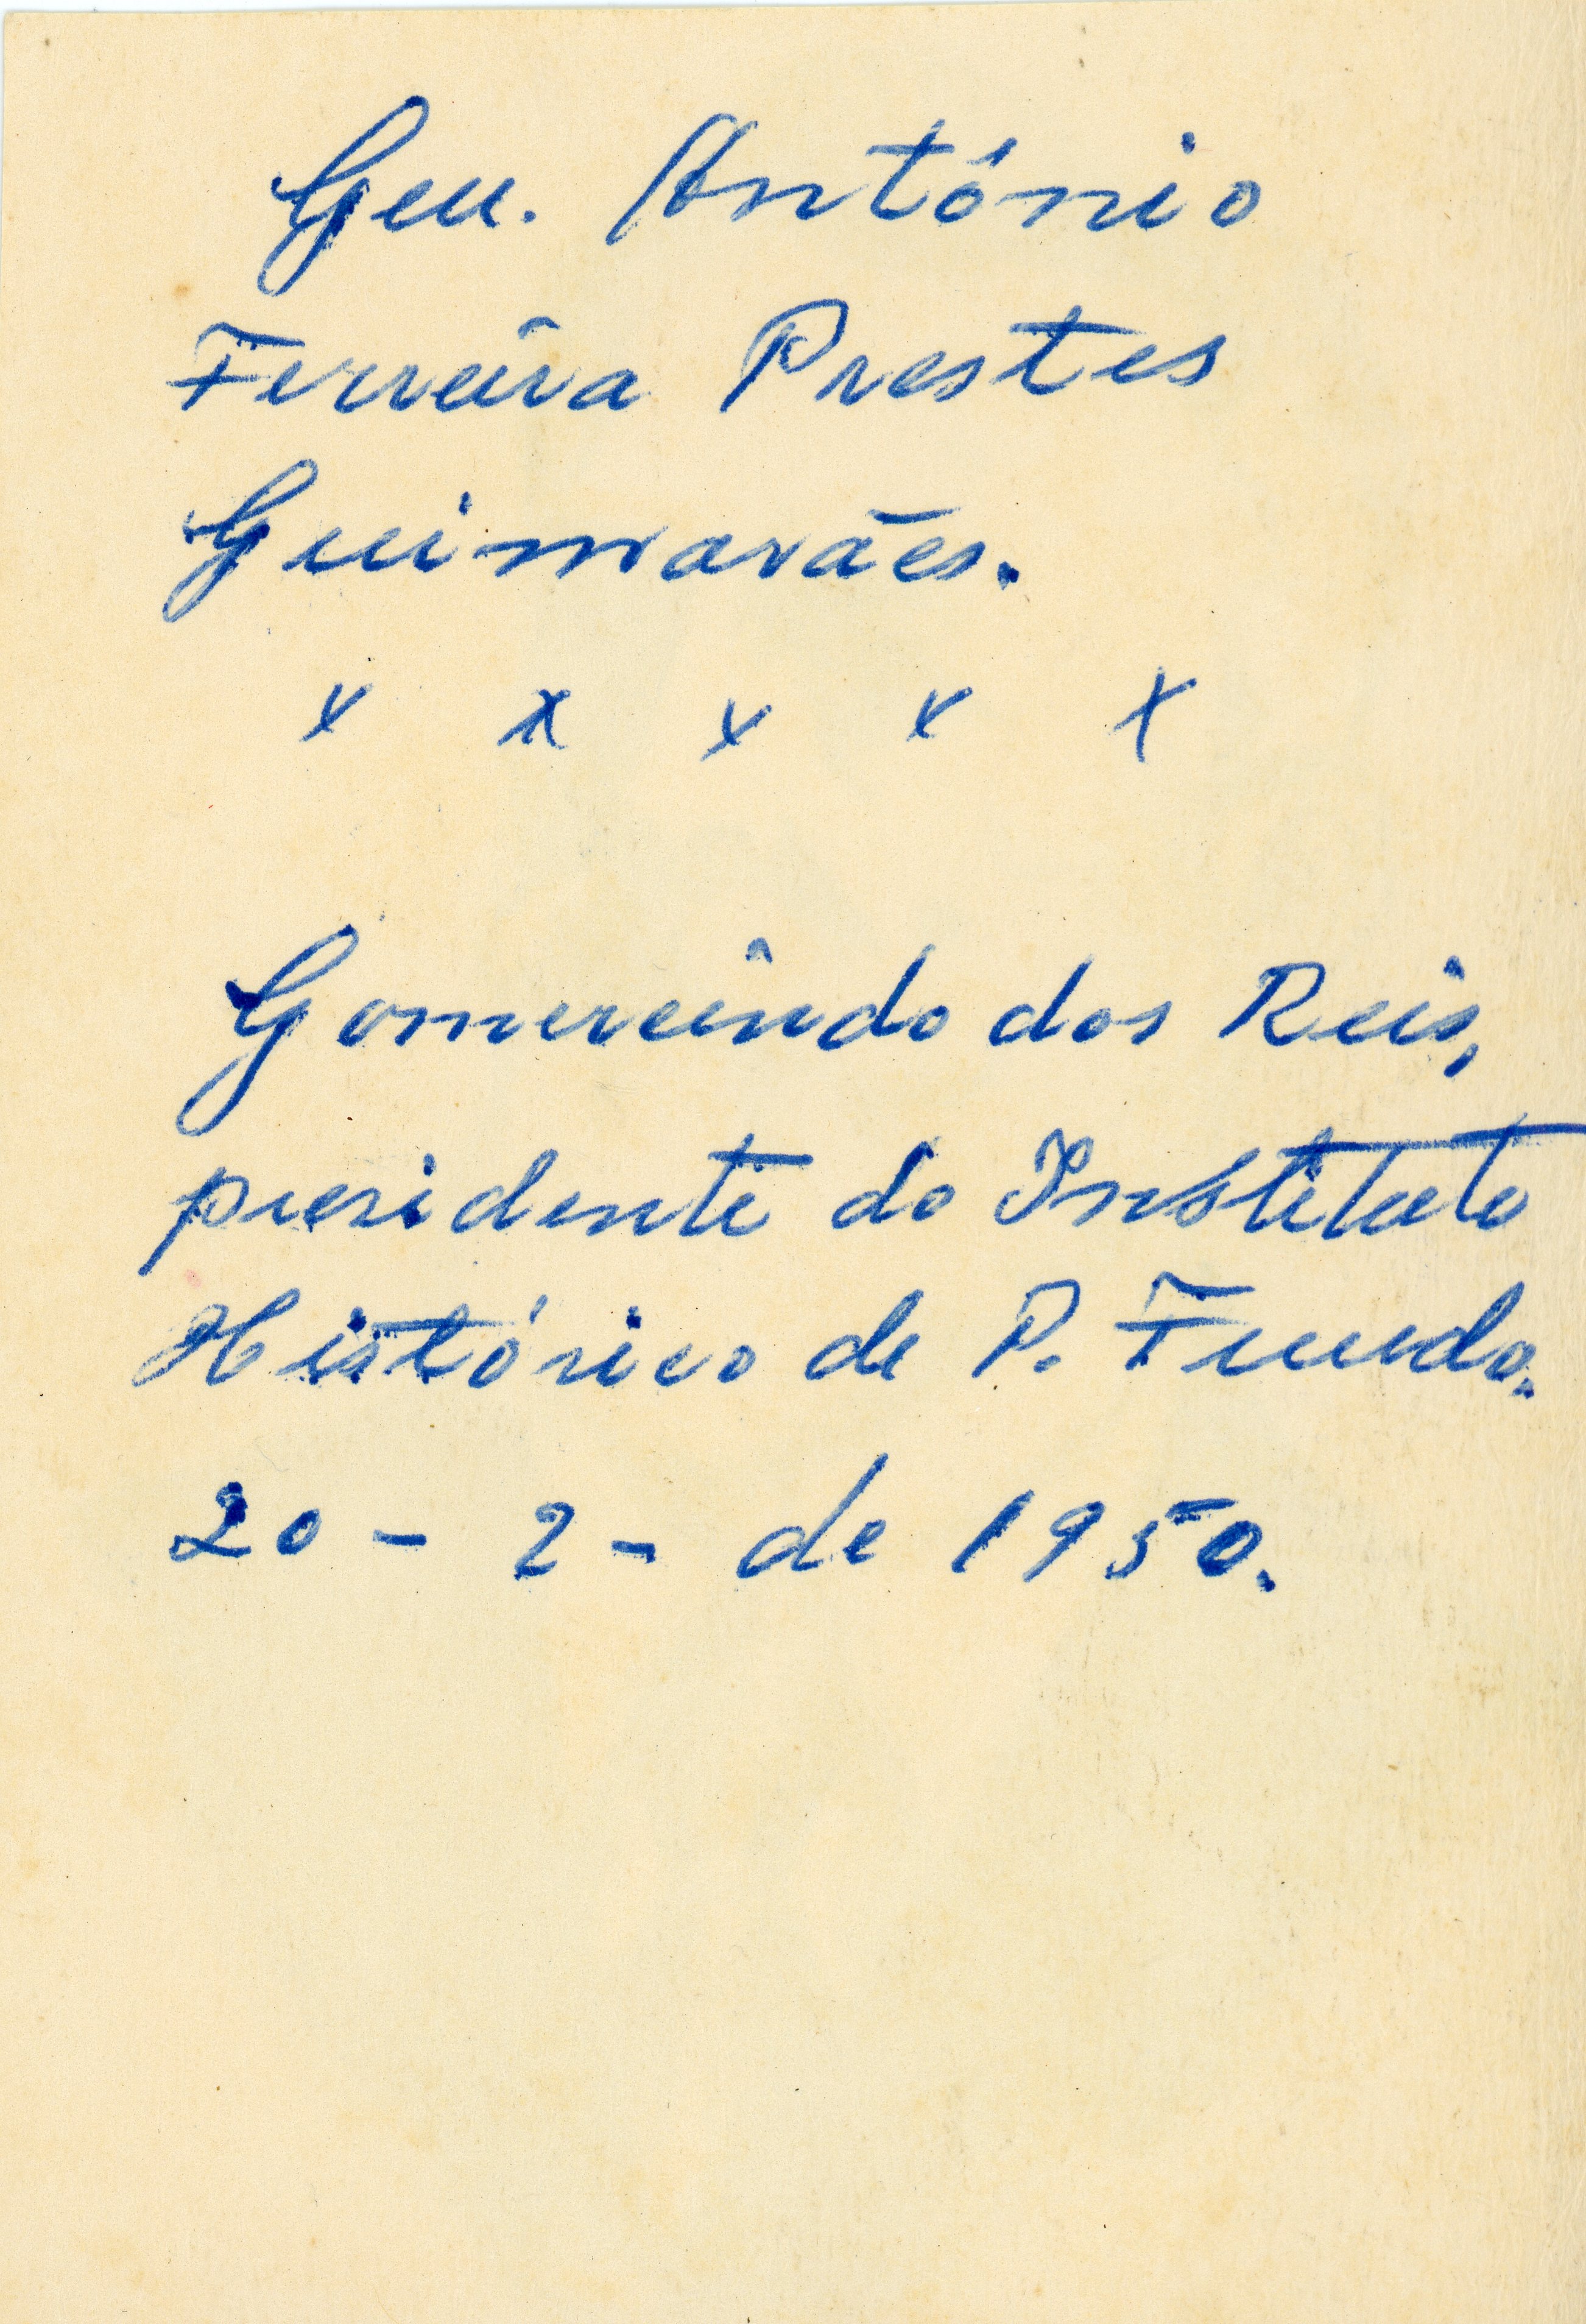 Gen. António
Ferreira Prestes
Guimarães.
x x x x x
Gomercindo dos Reis,
presidente do Instituto
Histórico de P. Fundo.
20 - 2 - de 1950.